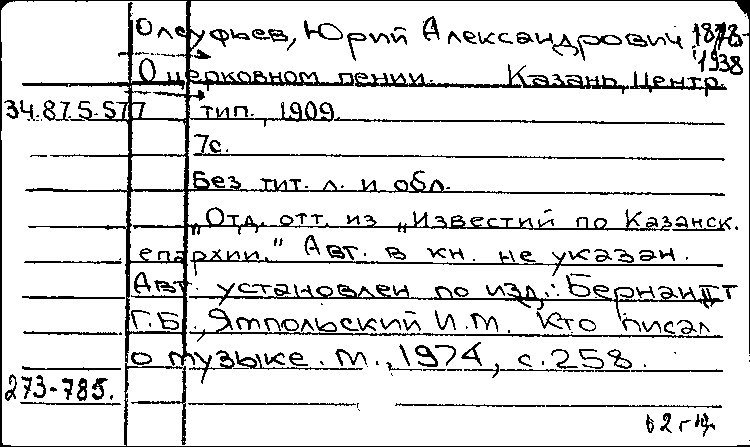 Олсуфьев, Юрий Александрович 1878-
1938
О церковном пении. Казань, Центр.
34.875.577 тип., 1909.
7с.
Без тит. л. и обл.
„Отд. отт. из „Известий по Казанск.
епархии." Авт. в кн. не указан.
Авт. установлен по изд.: Бернандт
Г.Б., Ямпольский И.М. Кто писал
о музыке. М., 1974, с.258.
273-785.